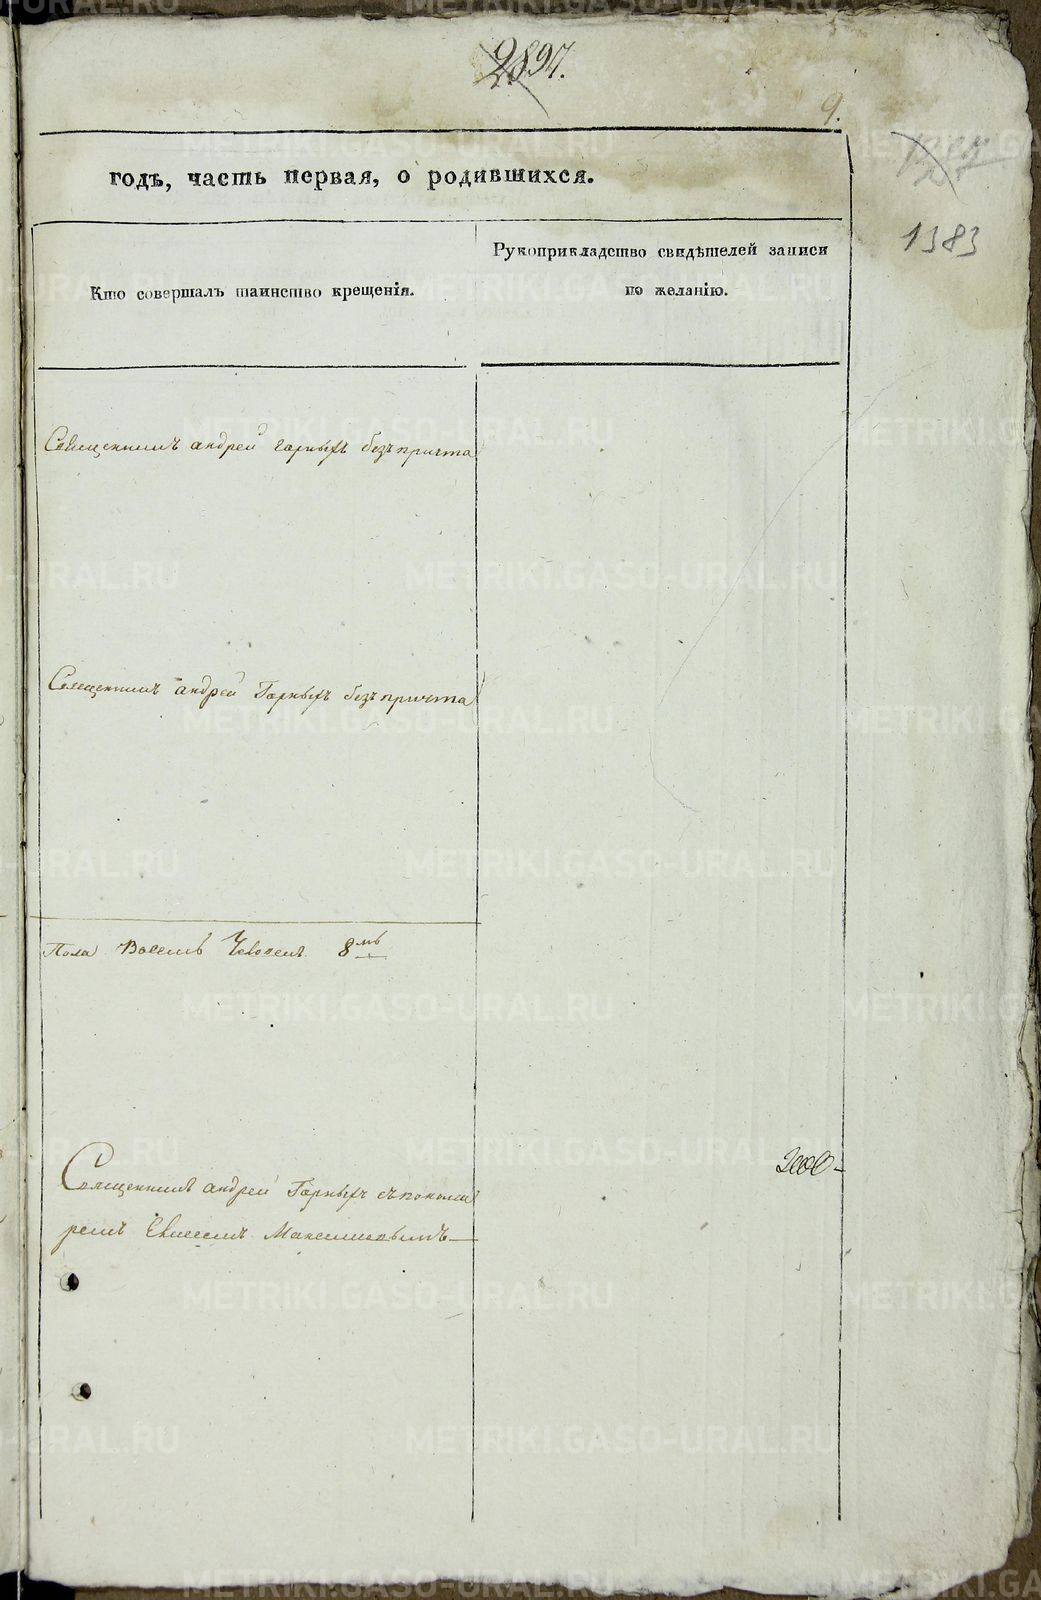 2897.
9.
1383
годъ, часть первая, о родившихся.
Кто совершалъ таинство крещенія.
Рукоприкладство свидѣтелей записи
по желанію.
Священникъ андрей Горныхъ безъ причта
Священникъ андрей Горныхъ безъ причта
Пола Восемь Человекъ 8мь
Священникъ андрей Горныхъ съ понома
ремъ Максимовымъ
METRIKI.GASO-URAL.RU